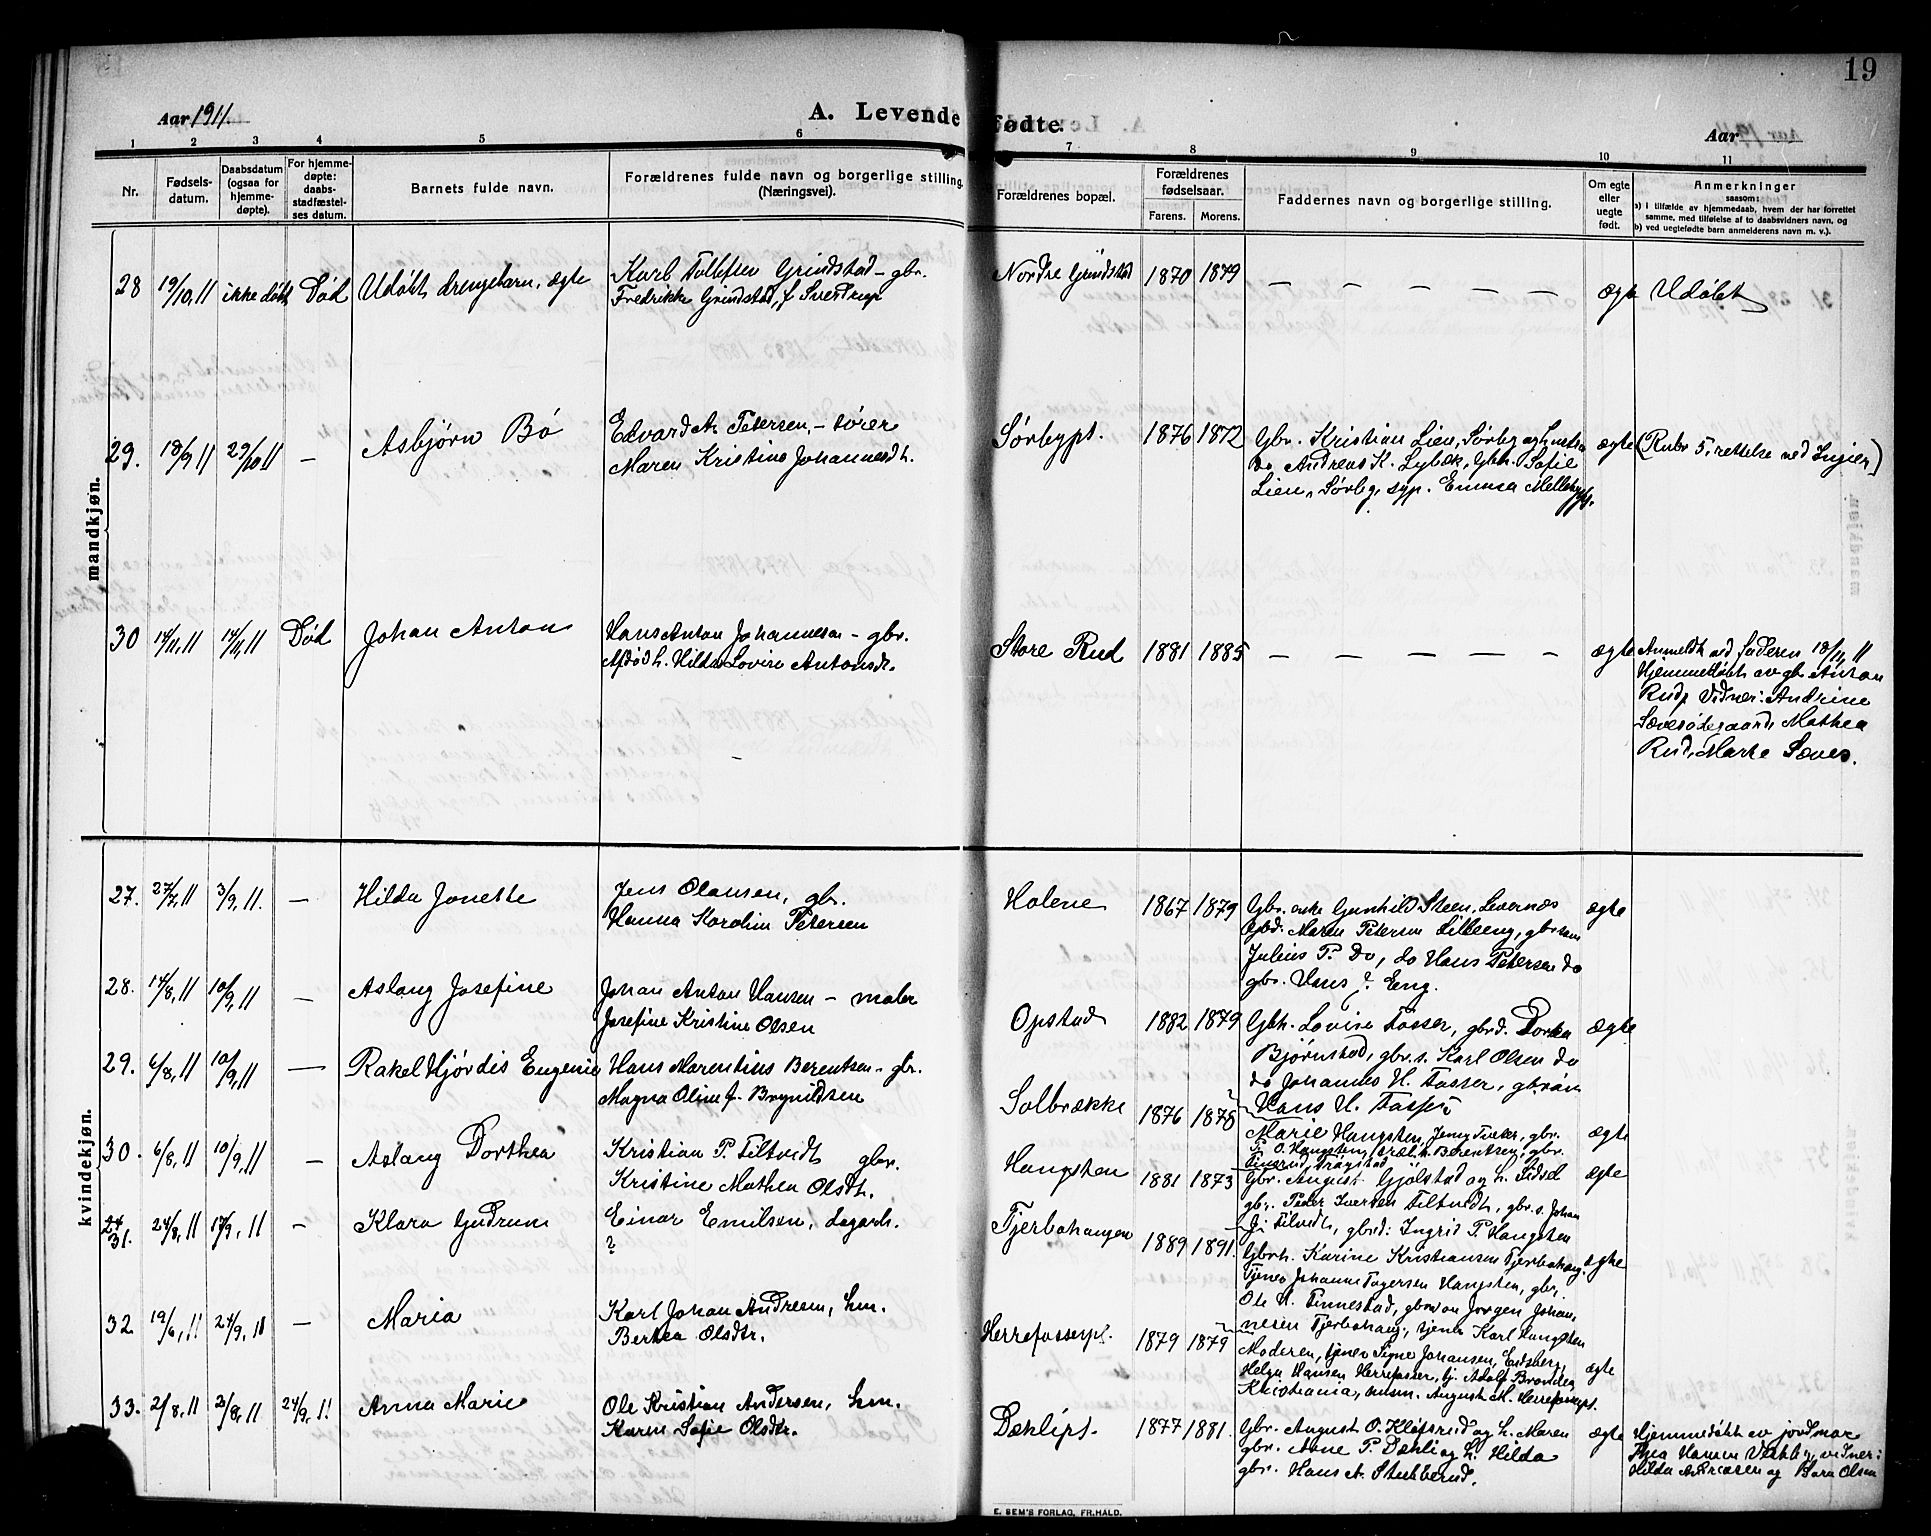 19
Aar 1911.
A. Levende fødte.
Aar
1 2 3 4 5 6 7 8 9 10 11
Nr.
Fødsels-
datum.
Daabsdatum
(ogsaa for
hjemme-
døpte).
For hjemme-
døpte:
daabs-
stadfæstel-
ses datum.
Barnets fulde navn.
Forældrenes fulde navn og borgerlige stilling
(Næringsvei).
Forældrenes bopæl.
Forældrenes
fødselsaar.
Farens. Morens.
Faddernes navn og borgerlige stilling.
Om egte
eller
uegte
født.
Anmerkninger
saasom:
a) i tilfælde av hjemmedaab, hvem der har forrettet
samme, med tilføielse af to daabsvidners navn, og
b) ved uegtefødte barn anmelderens navn m. v.).
mandkjøn.
28 19/10, 11 ikke døbt Død Udøbt drengebarn, ægte
Karl Tollefsen Grindstad - gbr.
Fredrikke Grindstad, f. Sverdrup
Nordre Grindstad 1870 1879 — — — — — — ægte Udøbt
29. 18/9 11 29/10 11 — Asbjørn Bó
Edvard A. Petersen, - tører
Maren Kristine Johannesdt.
Sørbypl. 1876 1872
Gbr. Kristian Lien, Sørby og
do Andreas K. Lybæk, Gbh. Sofie
Lien, Sørby, syp. Emma Mellebypl.
ægte (Rubr 5, rettelse ved Ingier)
30 14/11, 11 14/11, 11 Død Johan Anton
Hans Anton Johannesen - gbr.
Afdød h. Hilda Lovise Antonsdt.
Store Rud 1881 1885 — — — — — — ægte
Anmeldt ved faderen 18/11, 11
Hjemmedøbt av gbr Anton
Rud, Vidner: Andrine
Sævesødegaard, Mathea
Rud, Marte Sæves.
kvindekjøn.
27. 27/7, 11 3/9, 11. — Hilda Jonette
Jens Olausen, gbr.
Hanna Karolin Petersen
Holene 1867 1879
Gbr. enke Gunhild Steen, Levernæs
Gbd. Maren Petersen Lilleeng, gbr søn
Julius P. do, do Hans Petersen do
gbr. Hans ? Eng.
ægte
28. 14/8, 11 10/9, 11 — Aslaug Josefine
Johan Anton Hansen - maler
Josefine Kristine Olsen
Opstad 1882 1879
Gbh. Lovise Fosser, gbrd. Dorthea
Bjørnstad, gbr. s. Karl Olsen do
do Johannes H. Fosser, gbrsøn
Hans H. Fosser
ægte
29. 6/8, 11 10/9, 11 — Rakel Hjørdis Eugenie
Hans Marentius Berentsen - gbr.
Magna Oline f. Brynildsen
Solbrække 1876 1878
Marie Hangsten, Jenny Tveter, gbr.
P. O. Hangsten, Berentsen, gbr.
Trøgstad
ægte
30. 6/8, 11 10/9, 11 — Aslaug Dorthea
Kristian P. Tiltvidt gbr.
Kristine Mathea Olsdt.
Hangsten 1881 1873
Gbr. August Gjølstad og h. Sidsel
gbr. Peder Iversen Tiltvidt, gbr. s. Johan
J. Tiltvidt, gbrd: Ingrid P. Hangsten
ægte
24
31. 24/8, 11 17/9, 11 — Klara Gudrun
Einar Emilsen, Lagarb.
?
Tjerbohaugen 1889 1891.
Gbrh. Karine Kristiansen Tjerbohaug,
Tjener Johanne Tagersen Hangsten, gbr.
Ole H. Finnestad, gbrsøn Jørgen Johan,
nesen Tjerbohaug, tjener Karl Hangsten
ægte
32. 19/6, 11 24/9, 11 — Maria
Karl Johan Andresen, hm.
Berthea Olsdtr.
Herrefosserpl. 1879 1879
Moderen, tjener Signe Johansen, Eidsberg,
Helga Hansen Herrefosser, tj. Adolf Brandeg
Kristiania, husm. August M. Herrefosserpl.
ægte
33. 2/8, 11 2/8, 11 24/9, 11 Anna Marie
Ole Kristian Andersen, hm.
Karen Sofie Olsdtr.
Dæhlipl. 1877 1881.
Gbr. August O. Kløfsrud og h. Maren
gbr. Arne P. Dæhli og h. Hilda
gbr. Hans A. Stubberud.
ægte
Hjemmedøbt av jordmor
Thea Hansen vidner:
Hilda Andreasen og Sara Olsen
E. SEM'S FORLAG, FR.HALD.